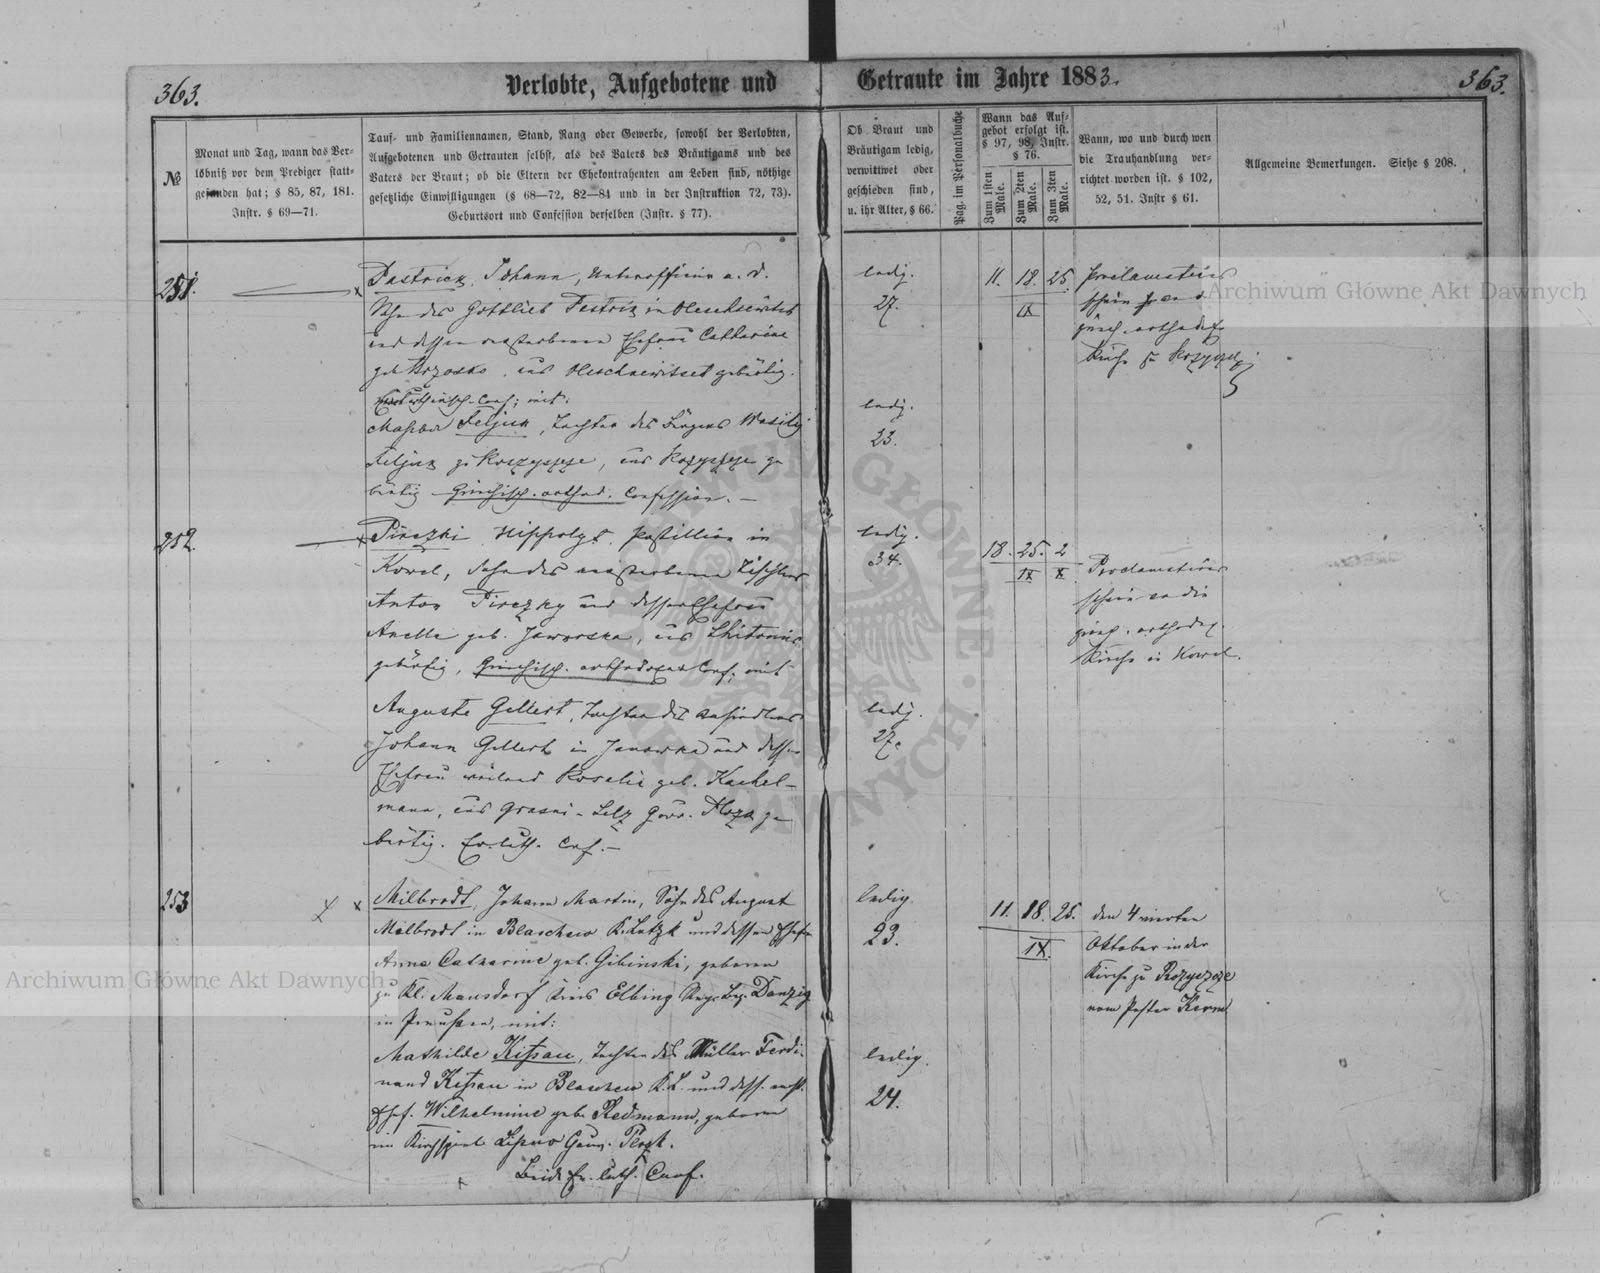 363.
Verlobte, Aufgebotene und Getraute im Jahre 1883.
363.
№
Monat und Tag, wann das Ver-
löbniß vor dem Prediger statt-
gefunden hat; § 85, 87, 181.
Instr. § 69—71.
Tauf- und Familiennamen, Stand, Rang oder Gewerbe, sowohl der Verlobten,
Aufgebotenen und Getrauten selbst, als des Vaters des Bräutigams und des
Vaters der Braut; ob die Eltern der Ehekontrahenten am Leben sind, nöthige
gesetzliche Einwilligungen (§ 68—72, 82—84 und in der Instruktion 72, 73).
Geburtsort und Confession derselben (Instr. § 77).
Ob Braut und
Bräutigam ledig,
verwittwet oder
geschieden sind,
u. ihr Alter, § 66.
Pag. im Personalbuche
Wann das Auf-
gebot erfolgt ist.
§ 97, 98, Instr.
§ 76.
Zum 1sten
Male.
Zum 2ten
Male.
Zum 3ten
Male.
Wann, wo und durch wen
die Trauhandlung ver-
richtet worden ist. § 102,
52, 51. Instr § 61.
Allgemeine Bemerkungen. Siehe § 208.
251.
Johann, Unterofficier a. D.
Sohn des Gottlieb in
und dessen verstorbenen Ehefrau Catharine
geb. aus gebürtig.
Conf; mit:
Feljuk, Tochter des Bürgers Wasilij
Feljuk zu Rozyszcze, aus Rozyszcze ge
bürtig Griechisch. orthod. Confession. —
ledig.
27.
ledig.
23.
11. 18. 25.
IX
Proclamations
schein
griech. orthodox
Kirche zu Rozyszcze.
252.
Pirezki Hippolyt, Postillion in
Kowel, Sohn des verstorbenen Tischlers
Anton Pirezky und dessen Ehefrau
Anelle geb. Jaworska, aus
gebürtig, Griechisch. orthodoxer Conf; mit
Auguste Gellert, Tochter des Ansiedlers
Johann Gellert in Janowka und dessen
Ehefrau weiland Rosalie geb. Kachel-
mann, aus Grasni - Gouv. Plozk ge
bürtig. Ev. luth. Conf. —
ledig.
34.
ledig.
27.
18. 25. 2
IX X
Proclamations
schein an die
griech. orthodox.
Kirche in Kowel.
253
Milbrodt, Johann Martin, Sohn des August
Milbrodt in Blaschew K. Lutzk und dessen Ehefr
Anna Catharine geb. Gibinski, geboren
zu Kl. Mausdorf Kreis Elbing Regs. Bez. Danzig
in Preußen, mit:
Mathilde Kißau, Tochter des Müller Ferdi-
nand Kißau in Blaschew K. L. und dess. verst.
Ehef. Wilhelmine geb. Redmann, geboren
im Kirchspiel Lipno Gouv. Plozk.
Beide Ev. luth. Conf.
ledig.
23.
ledig.
24.
11. 18. 25.
IX.
den 4 vierten
Oktober in der
Kirche zu Rozyszcze
vom Pastor Kerm
Archiwum Główne Akt Dawnych
Archiwum Główne Akt Dawnych
ARCHIWUM GŁÓWNE AKT DAWNYCH